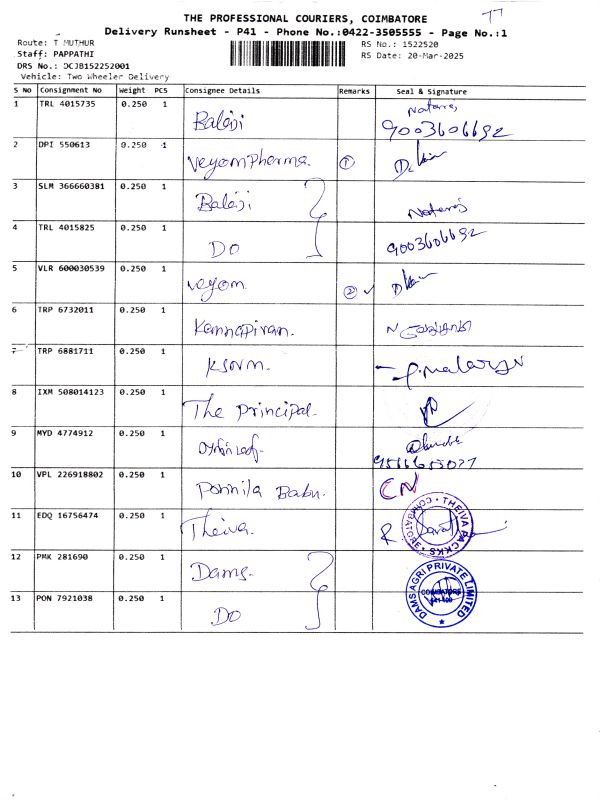 77
THE PROFESSIONAL COURIERS, COIMBATORE
Delivery Runsheet - P41 - Phone No.:0422-3505555 - Page No.:1
Route: T MUTHUR
RS No.: 1522520
Staff: PAPPATHI
RS Date: 20-Mar-2025
DRS No.: DCJB152252001
Vehicle: Two Wheeler Delivery
S No Consignment No Weight PCS Consignee Details Remarks Seal & Signature
1 TRL 4015735 0.250 1 Balaji Nataraj
9003606692
2 DPI 550613 0.250 1 Veyom Pherma. 1
3 SLM 366660381 0.250 1 Balaji Nataraj
4 TRL 4015825 0.250 1 DO 9003606692
5 VLR 600030539 0.250 1 veyom 2
6 TRP 6732011 0.250 1 Kannapiran.
7 TRP 6881711 0.250 1 KSOVM. P. Malargi
8 IXM 508014123 0.250 1 The principal.
9 MYD 4774912 0.250 1
9566653027
10 VPL 226918802 0.250 1 Ponnila Babu. CN
11 EDQ 16756474 0.250 1 Theiva. THEIVA PACKKS COIMBATORE
12 PMK 281690 0.250 1 Dams. DAMS AGRI PRIVATE LIMITED
COIMBATORE
13 PON 7921038 0.250 1 DO